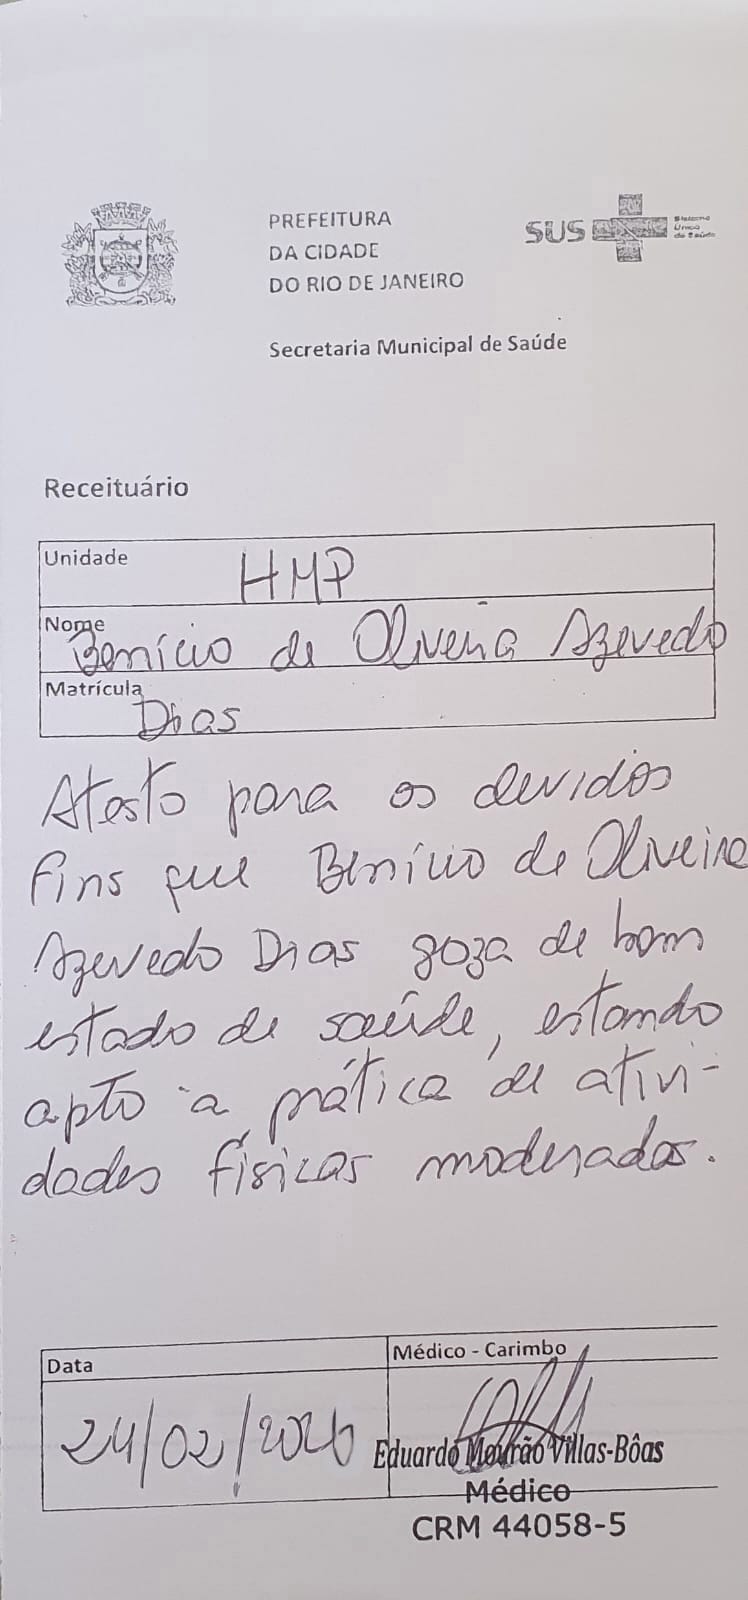 PREFEITURA
DA CIDADE
DO RIO DE JANEIRO
SUS
Sistema
Único
de Saúde
Secretaria Municipal de Saúde
Receituário
Unidade
HMP
Nome
Benício de Oliveira Azevedo
Matrícula
Dias
Atesto para os devidos
fins que Benício de Oliveira
Azevedo Dias goza de bom
estado de saúde, estando
apto à prática de ativi-
dades físicas moderadas.
Data
24/02/2026
Médico - Carimbo
Eduardo Mourão Villas-Bôas
Médico
CRM 44058-5